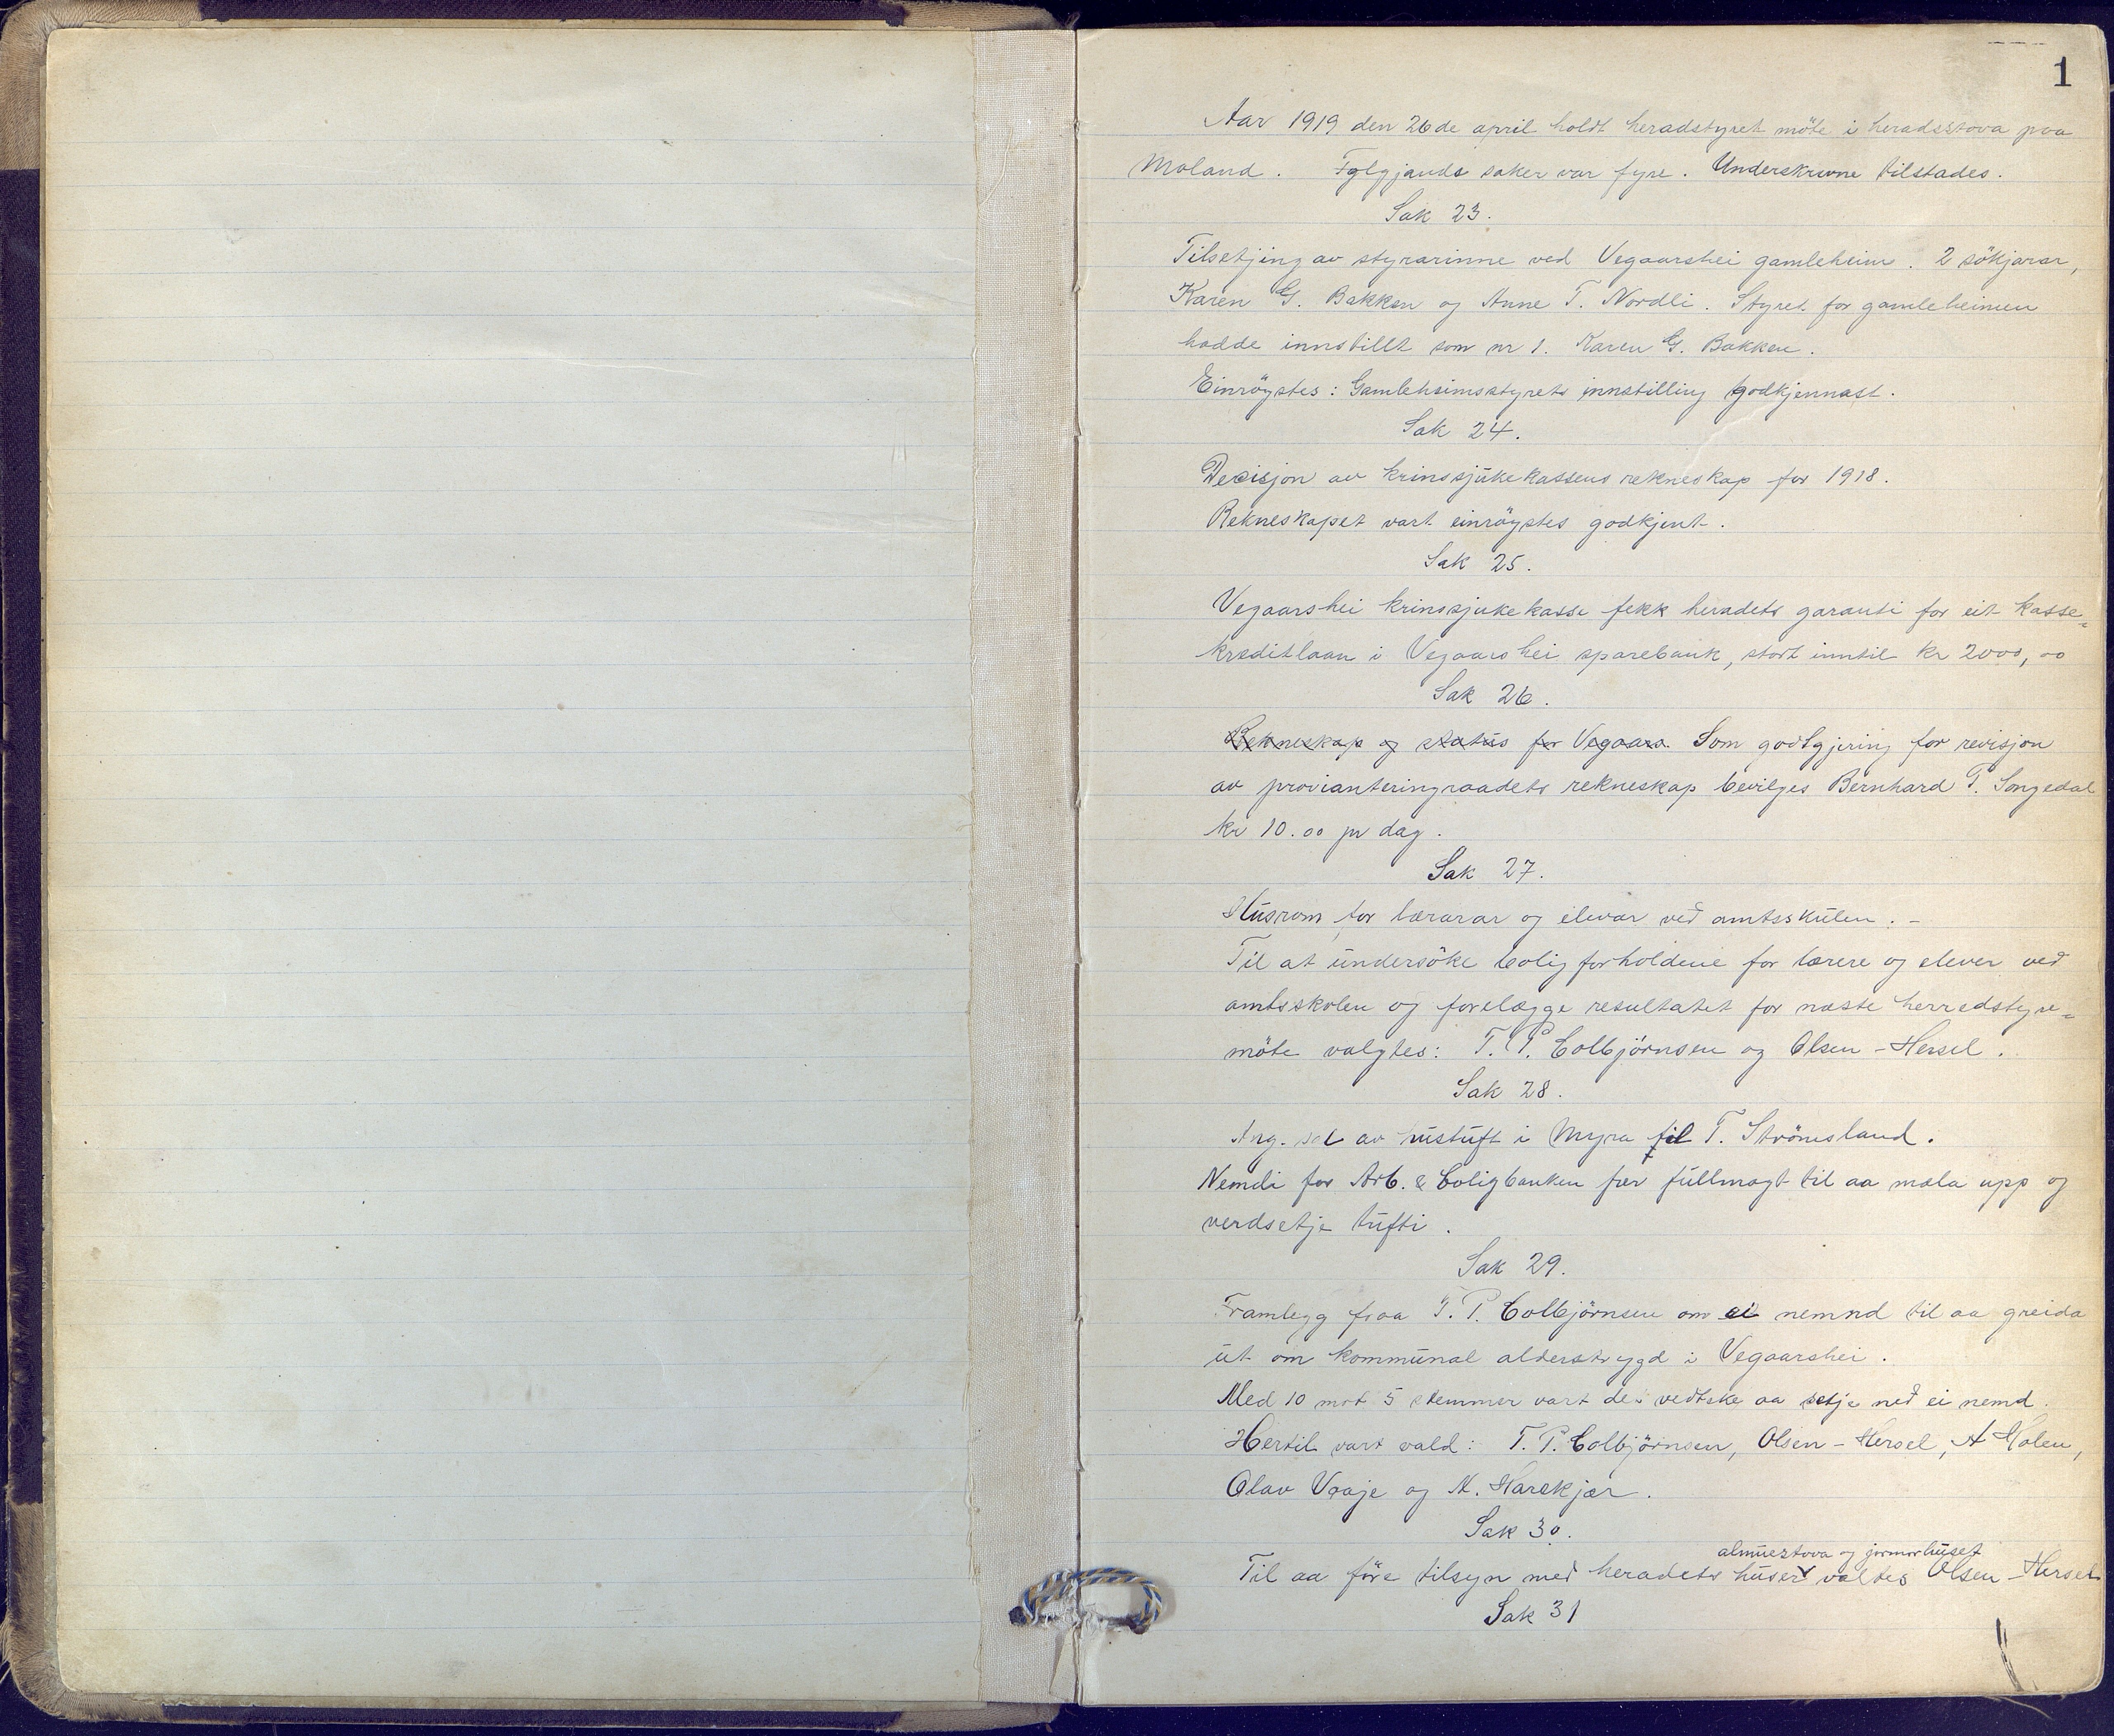 1
Aar 1919 den 26de april holdt heradstyret möte i heradsstova paa
Moland. Fylgjande saker var fyre. Underskrivne tilstades.
Sak 23.
Tilsetjing av styrarinne ved Vegaarshei gamleheim. 2 sökjarar,
Karen G. Bakken og Anne T. Nordli. Styret for gamleheimen
hadde innstillt som nr 1. Karen G. Bakken.
Einröystes: Gamleheimsstyrets innstilling godkjennast.
Sak 24.
Decisjon av krinssjukekassens rekneskap for 1918.
Rekneskapet vart einröystes godkjent.
Sak 25.
Vegaarshei krinssjukekasse fekk heradets garanti for eit kasse=
kreditlaan i Vegaarshei sparebank, stort inntil kr 2000,00
Sak 26.
Rekneskap og status for Vegaars. Som godtgjering for revisjon
av provianteringraadets rekneskap bevilges Bernhard T. Songedal
kr 10.00 pr dag.
Sak 27.
Husrom for lærarar og elevar ved amtsskulen. -
Til at undersöke boligforholdene for lærere og elever ved
amtsskolen og forelægge resultatet for næste herredstyre=
möte valgtes: T. P. Colbjörnsen og Olsen - Hersel.
Sak 28.
Ang. sal av hustuft i Myra til T. Strömsland.
Nemdi for Arb. & Boligbanken fær fullmagt til aa mæla upp og
verdsetje tufti.
Sak 29.
Framlegg fraa T. P. Colbjörnsen om ei nemnd til aa greida
ut om kommunal alderstrygd i Vegaarshei.
Med 10 mot 5 stemmer vart de vedteke aa setje ned ei nemd.
Hertil vart vald: T. P. Colbjörnsen, Olsen - Hersel, A Molen,
Olav Vaaje og N. Harekjær.
Sak 30.
almuestova og jormorhuset
Til aa före tilsyn med heradets huser valdes Olsen - Hersel
Sak 31